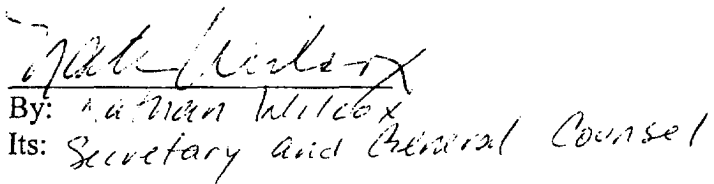 Nate Wilcox
By: Nathan Wilcox
Its: Secretary and General Counsel